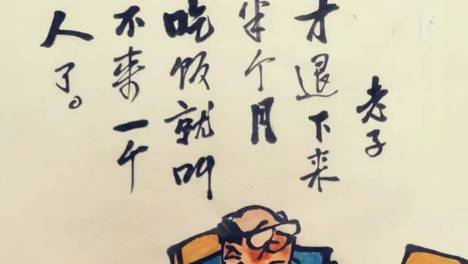 老子
才退下来
半个月
吃饭就叫
不来一个
人了。